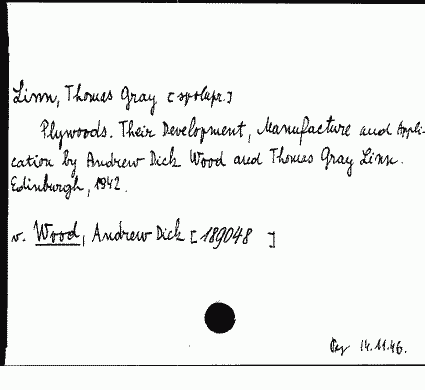 Linn, Thomas Gray [spolupr.]
Plywoods. Their Development, Manufacture and Appli-
cation by Andrew Dick Wood and Thomas Gray Linn.
Edinburgh, 1942.
v. Wood, Andrew Dick [189048 ]
14.11.46.